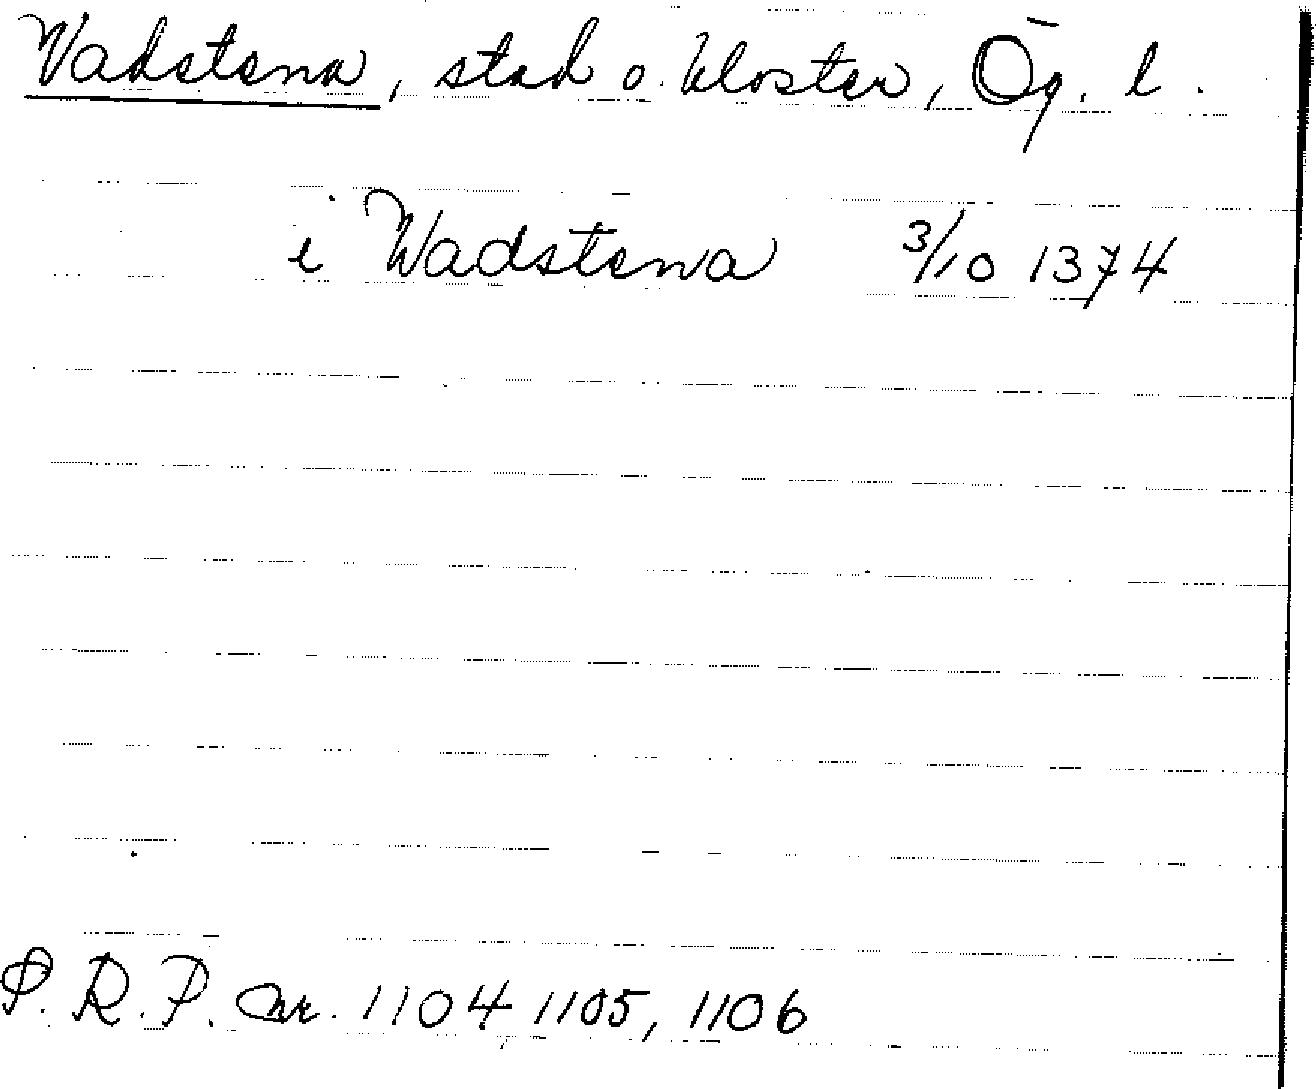 Vadstena, stad o. kloster, Ög. l.
i Wadstena 3/10 1374
P. R. P. nr. 1104, 1105, 1106